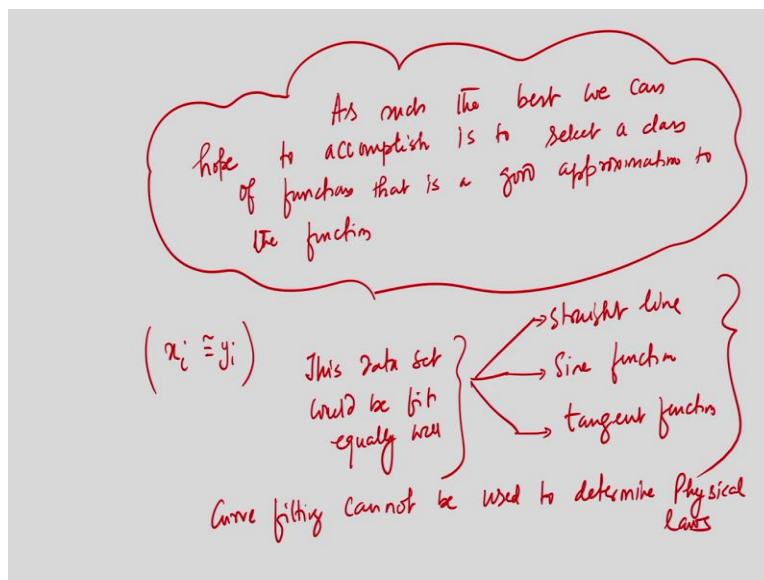 As such the best we can
hope to accomplish is to select a class
of functions that is a good approximation to
the function
(xᵢ ≅ yᵢ)
This data set
could be fit
equally well
straight line
Sine function
tangent function
Curve fitting cannot be used to determine Physical
laws